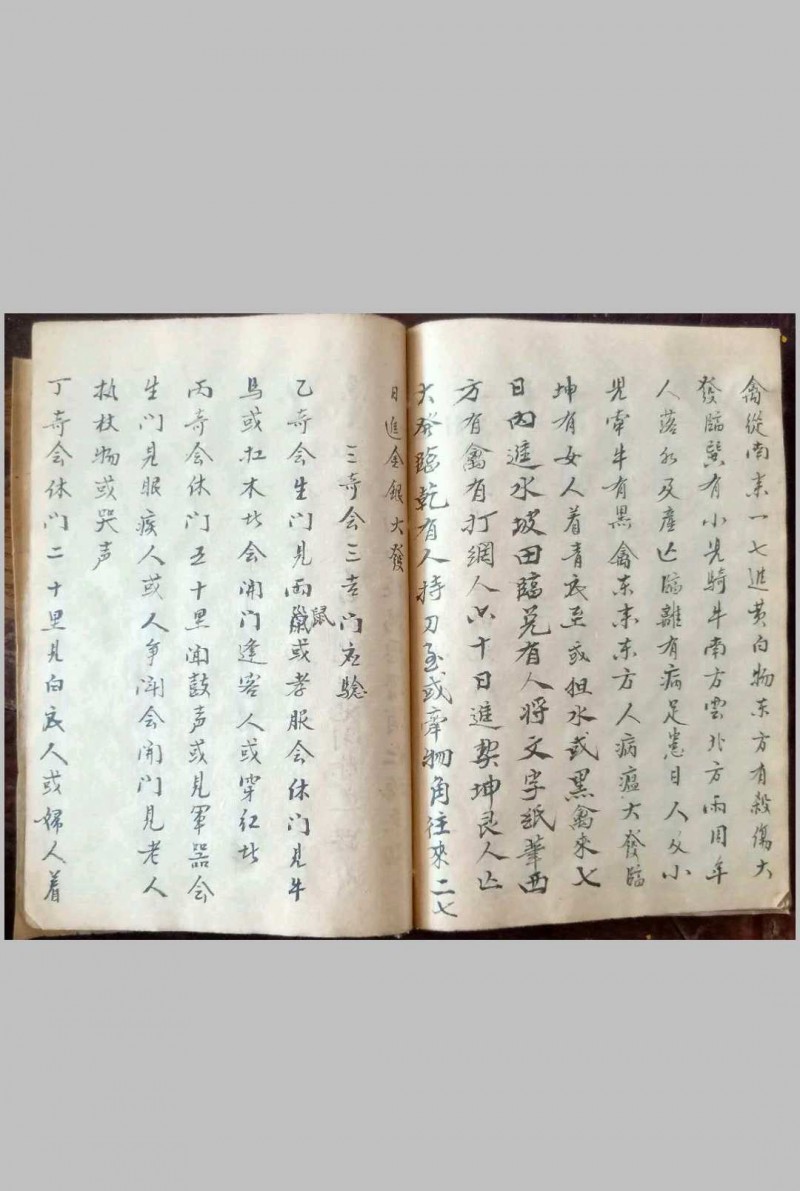 禽從南来一七進黄白物东方有殺傷大
發臨巽有小児騎牛南方雲北方雨周年
人落水及產亡臨離有病足患目人及小
児牵牛有黑禽东来东方人病瘟大發臨
坤有女人着青衣至或担水或黑禽來七
日内進水坡田臨兑有人將文字紙筆西
方有禽有打網人六十日進契坤艮人亡
大發臨乾有人持刀至或牵物角往來二七
日進金銀大發
三奇会三吉门应驗
乙奇会生门見兩鼠或孝服会休门見牛
馬或扛木者会開门逢客人或穿红者
丙奇会休门五十里闻鼓声或見軍器会
生门見眼疾人或人争闹会開门見老人
执杖物或哭声
丁奇会休门二十里見白衣人或婦人着